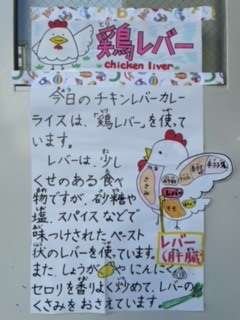 鶏レバー
chicken liver
今日のチキンレバーカレー
ライスは、「鶏レバー」を使って
います。
レバーは、少し
くせのある食べ
物ですが、砂糖や
塩、スパイスなどで
味つけされたペースト
状のレバーを使っています。
また、しょうがやにんにく、
セロリを香りよく炒めて、レバーの
くさみをおさえています。
ささみ
レバー
もも
レバー
(肝臓)